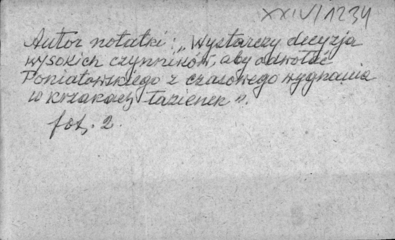 XXIV/1234
Autor notatki: „Wystarczy decyzja
wysokich czynników, aby odwołać
Poniatowskiego z czasowego wygnania
w krzakach Łazienek".
fot. 2.